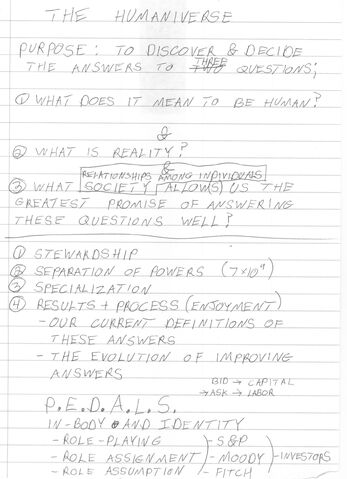 THE HUMANIVERSE
PURPOSE: TO DISCOVER & DECIDE
THE ANSWERS TO TWO THREE QUESTIONS;
① WHAT DOES IT MEAN TO BE HUMAN?
&
② WHAT IS REALITY?
&
RELATIONSHIPS AMONG INDIVIDUALS
③ WHAT SOCIETY ALLOW(S) US THE
GREATEST PROMISE OF ANSWERING
THESE QUESTIONS WELL?
① STEWARDSHIP
② SEPARATION OF POWERS (7×10⁹)
③ SPECIALIZATION
④ RESULTS + PROCESS (ENJOYMENT)
- OUR CURRENT DEFINITIONS OF
THESE ANSWERS
- THE EVOLUTION OF IMPROVING
ANSWERS
BID → CAPITAL
→ ASK → LABOR
P.E.D.A.L.S.
IN-BODY AND IDENTITY
- ROLE-PLAYING - S&P
- ROLE ASSIGNMENT - MOODY - INVESTORS
- ROLE ASSUMPTION - FITCH